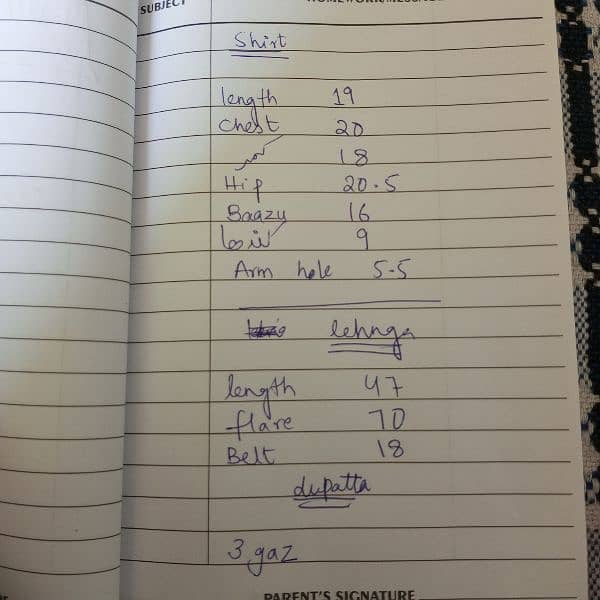 SUBJECT
Shirt
length 19
Chest 20
کمر 18
Hip 20.5
Baazu 16
9
Arm hole 5.5
lehnga
length 47
flare 70
Belt 18
dupatta
3 gaz
PARENT'S SIGNATURE